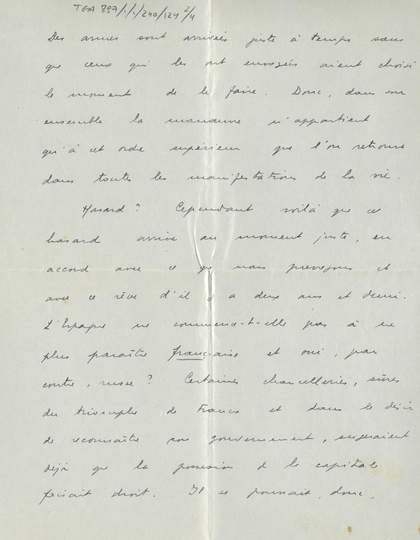 TGA 897/1/1/240/124 2/4
Des armes sont arrivées juste à temps sans
que ceux qui les ont envoyées aient choisi
le moment de le faire. Donc, dans son
ensemble la manœuvre n'appartient
qu'à cet ordre supérieur que l'on retrouve
dans toutes les manifestations de la vie.
Hasard? Cependant voilà que ce
hasard arrive au moment juste, en
accord avec ce que nous prévoyons et
avec ce rêve d'il y a deux ans et demi.
L'Espagne ne commence-t-elle pas à ne
plus paraître française et oui, par
contre, russe? Certaines chancelleries, sûres
du triomphe de Franco et dans le désir
de reconnaître son gouvernement, songeaient
déjà que la possession de la capitale
faisait droit. Il se pourrait, donc,